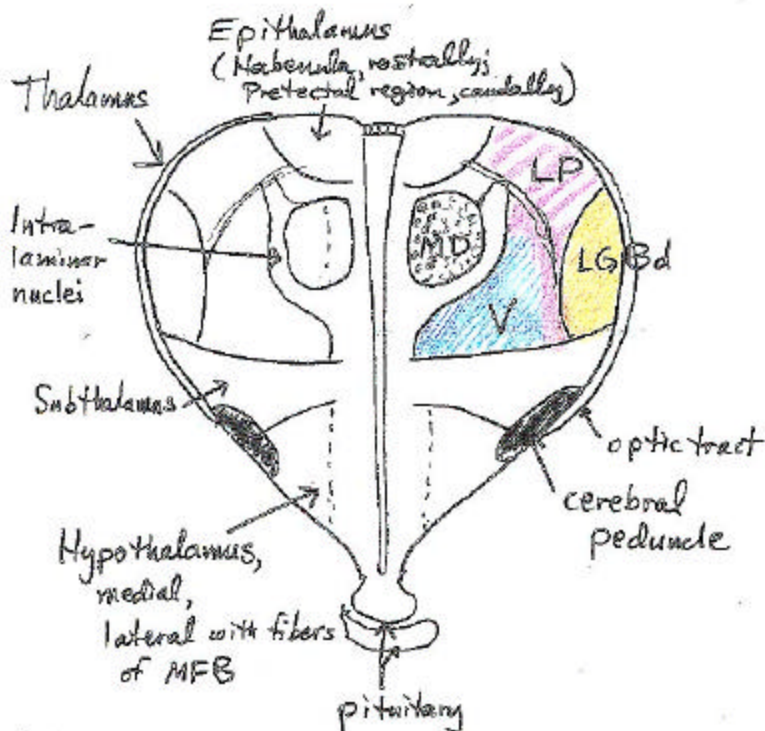 Epithalamus
(Habenula, rostrally;
Pretectal region, caudally)
Thalamus
Intra-
laminar
nuclei
LP
MD
LGBd
V
Subthalamus
optic tract
cerebral
peduncle
Hypothalamus,
medial,
lateral with fibers
of MFB
pituitary